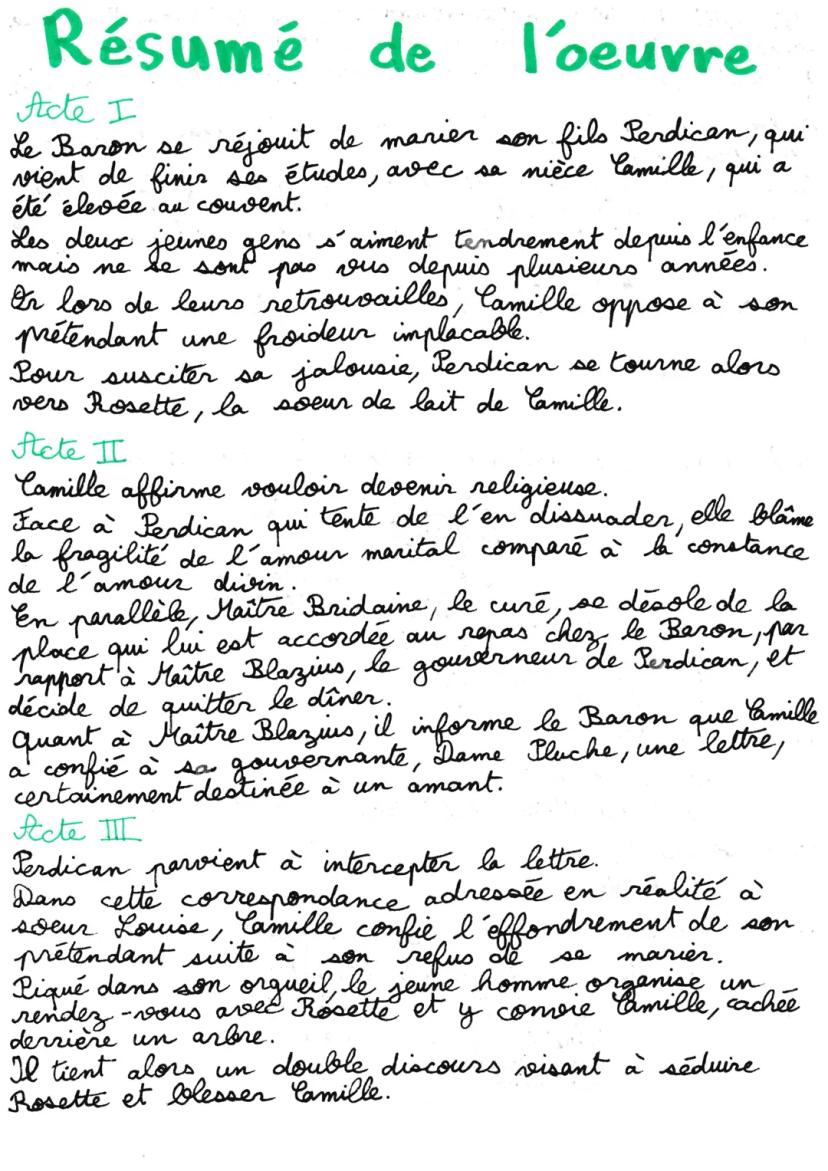 Résumé de l'oeuvre
Acte I
Le Baron se réjouit de marier son fils Perdican, qui
vient de finir ses études, avec sa nièce Camille, qui a
été élevée au couvent.
Les deux jeunes gens s'aiment tendrement depuis l'enfance
mais ne se sont pas vus depuis plusieurs années.
Or lors de leurs retrouvailles, Camille oppose à son
prétendant une froideur implacable.
Pour susciter sa jalousie, Perdican se tourne alors
vers Rosette, la soeur de lait de Camille.
Acte II
Camille affirme vouloir devenir religieuse.
Face à Perdican qui tente de l'en dissuader, elle blâme
la fragilité de l'amour marital comparé à la constance
de l'amour divin.
En parallèle, Maître Bridaine, le curé, se désole de la
place qui lui est accordée au repas chez le Baron, par
rapport à Maître Blazius, le gouverneur de Perdican, et
décide de quitter le dîner.
Quant à Maître Blazius, il informe le Baron que Camille
a confié à sa gouvernante, Dame Pluche, une lettre,
certainement destinée à un amant.
Acte III
Perdican parvient à intercepter la lettre.
Dans cette correspondance adressée en réalité à
soeur Louise, Camille confie l'effondrement de son
prétendant suite à son refus de se marier.
Piqué dans son orgueil, le jeune homme organise un
rendez-vous avec Rosette et y convie Camille, cachée
derrière un arbre.
Il tient alors un double discours visant à séduire
Rosette et blesser Camille.